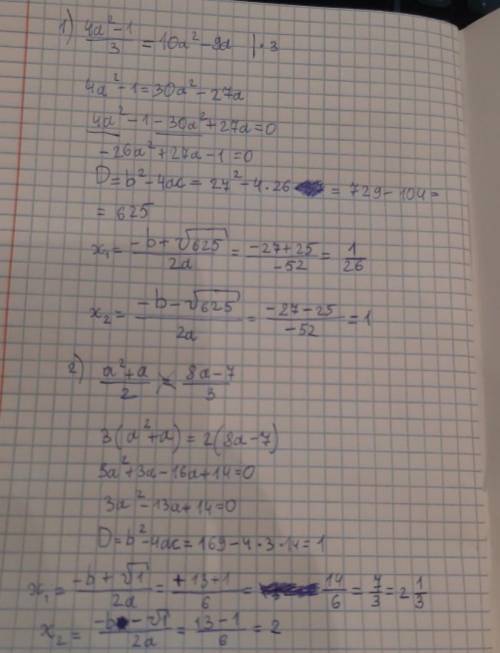 1) (4a²-1)/3 = 10a²-9a |·3
4a²-1=30a²-27a
4a²-1-30a²+27a=0
-26a²+27a-1=0
D=b²-4ac=27²-4·26 = 729-104=
= 625
x₁= (-b+√625)/2a = (-27+25)/-52 = 1/26
x₂= (-b-√625)/2a = (-27-25)/-52 = 1
2) (a²+a)/2 = (8a-7)/3
3(a²+a)=2(8a-7)
3a²+3a-16a+14=0
3a²-13a+14=0
D=b²-4ac=169-4·3·14=1
x₁= (-b+√1)/2a = (+13+1)/6 = 14/6 = 7/3 = 2 1/3
x₂= (-b-√1)/2a = (13-1)/6 = 2